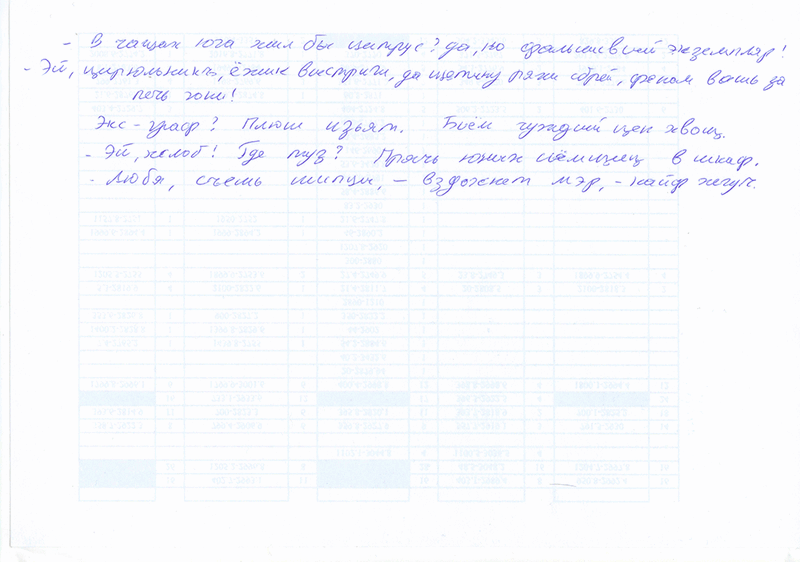 - В чащах юга жил бы цитрус? да, но фальшивый экземпляр!
- Эй, цирюльникъ, ёжик выстриги, да щетину ряхи сбрей, феном вошь за
печь гони!
Экс-граф? Плюш изъят. Бьём чуждый цен хвощ.
- Эй, жлоб! Где туз? Прячь юных съёмщиц в шкаф.
- Любя, съешь щипцы, - вздохнёт мэр, - кайф жгуч.